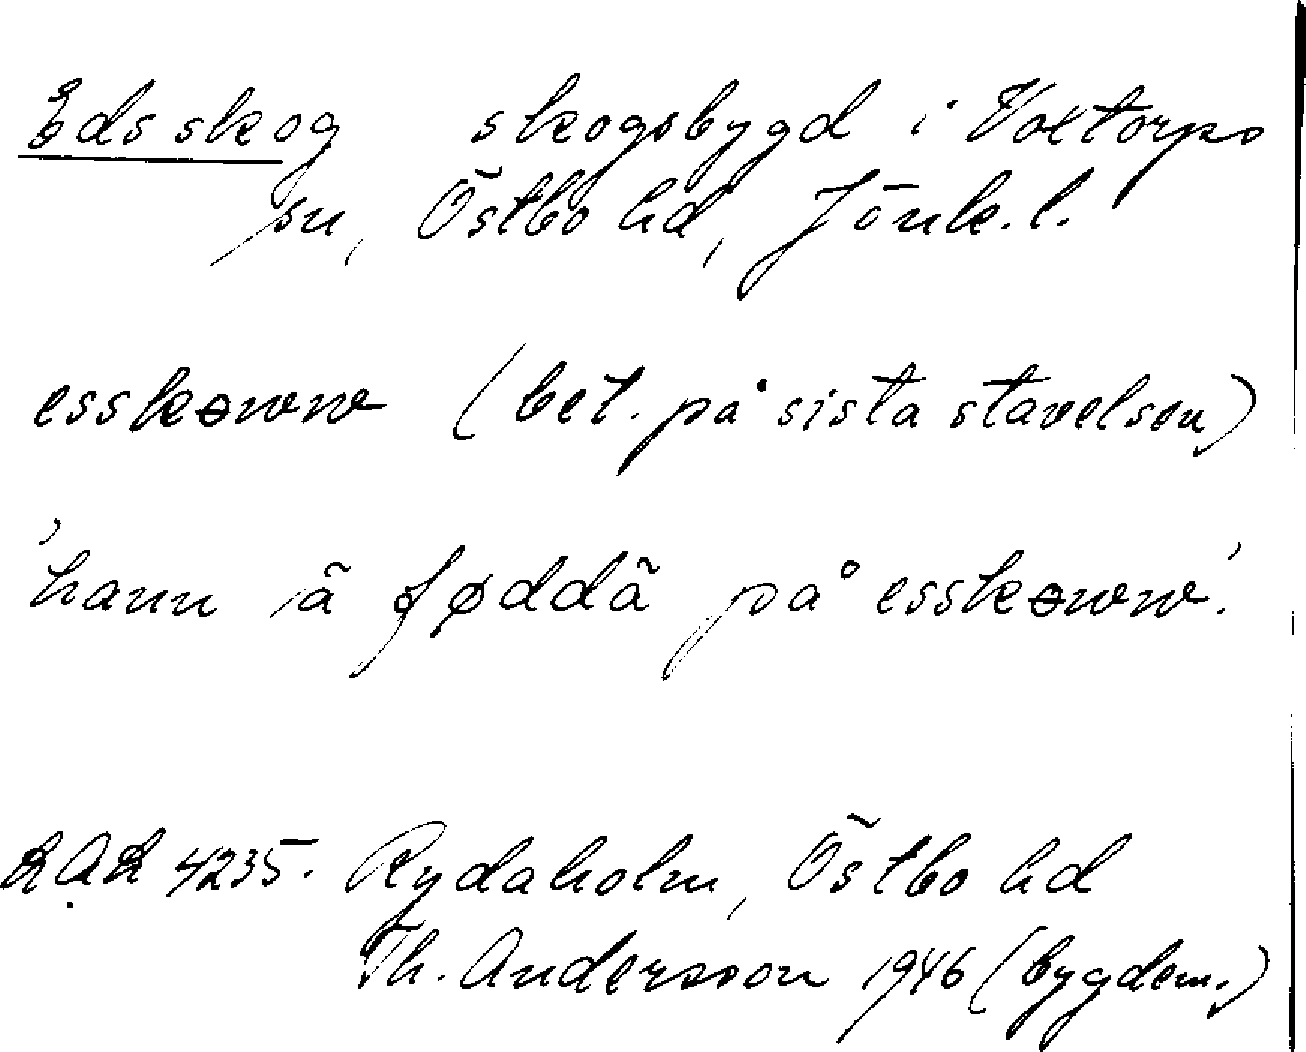 Edsskog skogsbygd i Voxtorps
sn, Östbo hd, Jönk.l.
esskowwe (bet. på sista stavelsen)
'hann ä føddä på esskowwe'.
4235. Rydaholm, Östbo hd
Th. Andersson 1946 (bygdem.)